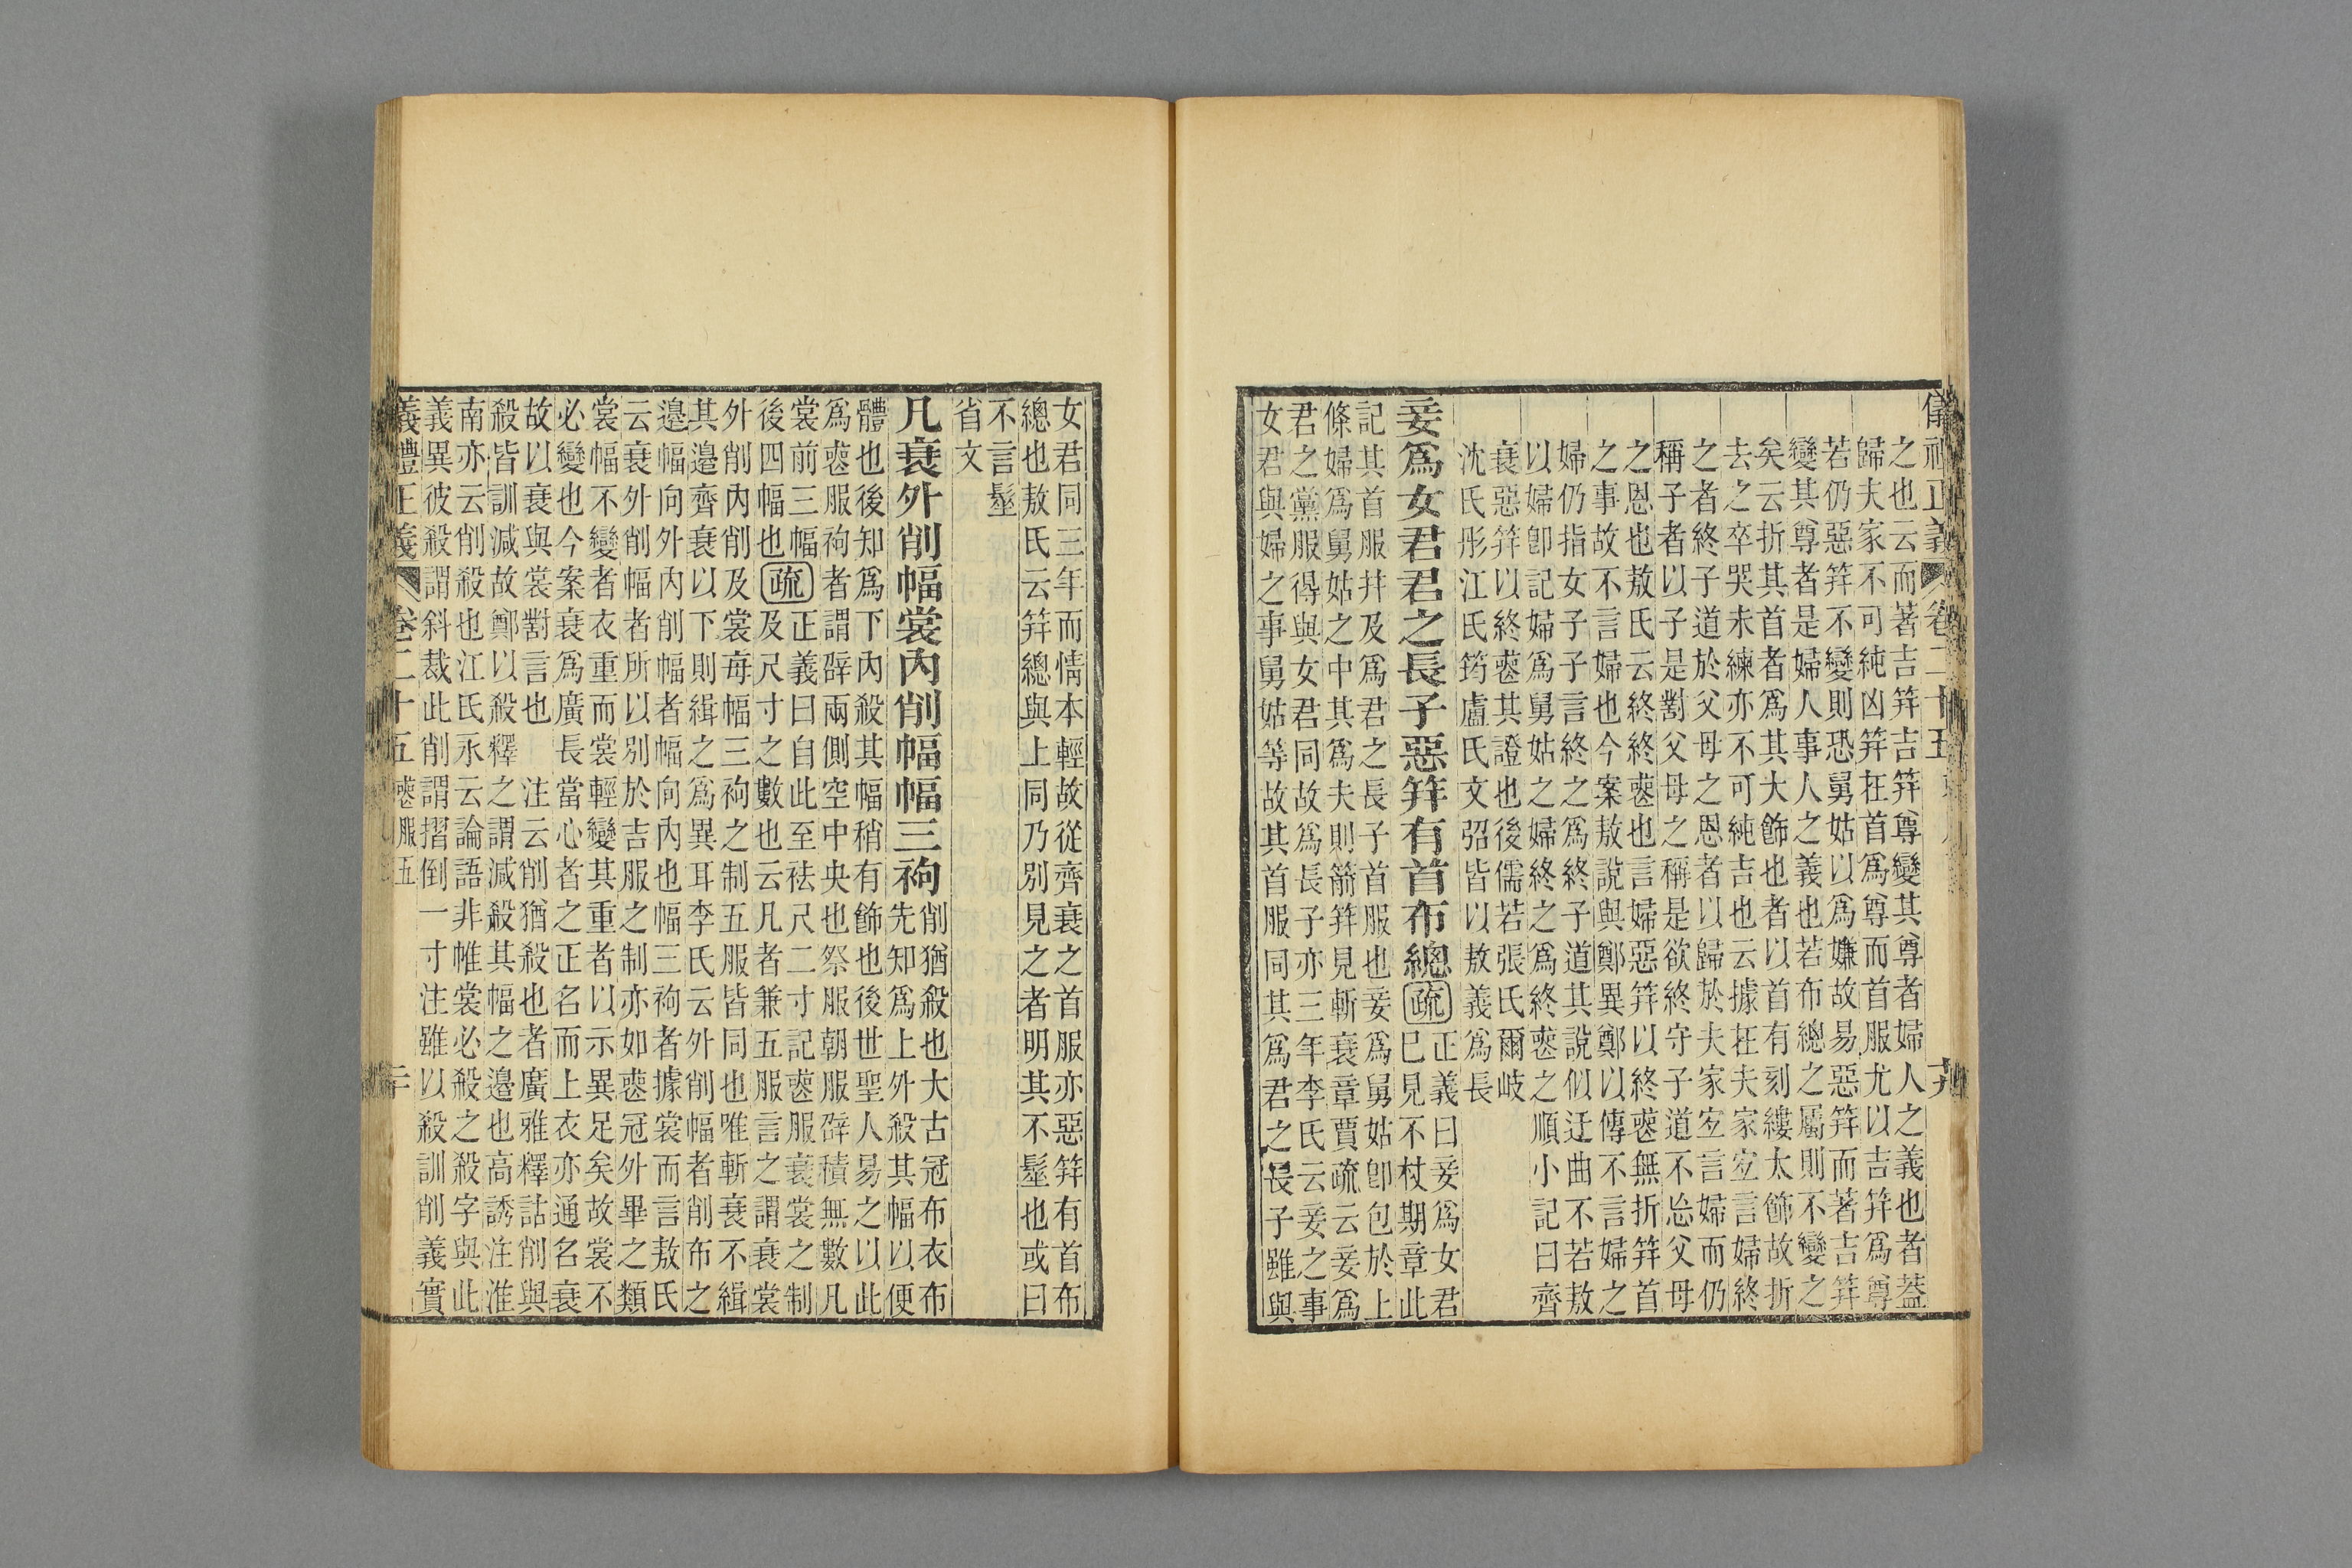 儀禮正義 卷二十五 十九
之也云而著吉笄吉笄尊變其尊者婦人之義也者葢
歸夫家不可純凶笄在首爲尊而首服尤以吉笄爲尊
若仍惡笄不變則恐舅姑以爲嫌故易惡笄而著吉笄
變其尊者是婦人事人之義也若布總之屬則不變之
矣云折其首者爲其大飾也者以首有刻縷太飾故折
去之卒哭未練亦不可純吉也云據在夫家宐言婦終
之者終子道於父母之恩者以歸於夫家宐言婦而仍
稱子者以子是對父母之稱是欲終守子道不忘父母
之恩也敖氏云終終䘮也言婦惡笄以終䘮無折笄首
之事故不言婦也今案敖說與鄭異鄭以傳不言婦之
婦仍指女子子言終之爲終子道其說似迂曲不若敖
以婦卽記婦爲舅姑之婦終之爲終䘮之順小記曰齊
衰惡笄以終䘮其證也後儒若張氏爾岐
沈氏彤江氏筠盧氏文弨皆以敖義爲長
妾爲女君君之長子惡笄有首布總
疏正義曰妾爲女君
巳見不杖期章此
記其首服幷及爲君之長子首服也妾爲舅姑卽包於上
條婦爲舅姑之中其爲夫則箭笄見斬衰章賈疏云妾爲
君之黨服得與女君同故爲長子亦三年李氏云妾之事
女君與婦之事舅姑等故其首服同其爲君之長子雖與
女君同三年而情本輕故從齊衰之首服亦惡笄有首布
總也敖氏云笄總與上同乃別見之者明其不髽也或曰
不言髽
省文
凡衰外削幅裳內削幅幅三袧
削猶殺也大古冠布衣布
先知爲上外殺其幅以便
體也後知爲下內殺其幅稍有飾也後世聖人易之以此
爲䘮服袧者謂辟兩側空中央也祭服朝服辟積無數凡
裳前三幅
後四幅也
疏正義曰自此至袪尺二寸記䘮服衰裳之制
及尺寸之數也云凡者兼五服言之謂衰裳
外削內削及裳每幅三袧之制五服皆同也唯斬衰不緝
其邉齊衰以下則緝之爲異耳李氏云外削幅者削布之
邉幅向外內削幅者幅向內也幅三袧者據裳而言敖氏
云衰外削幅者所以別於吉服之制亦如䘮冠外畢之類
裳幅不變者衣重而裳輕變其重者以示異足矣故裳不
必變也今案衰爲廣長當心者之正名而上衣亦通名衰
故以衰與裳對言也 注云削猶殺也者廣雅釋詁削與
殺皆訓減故鄭以殺釋之謂減殺其幅之邉也高誘注淮
南亦云削殺也江氏永云論語非帷裳必殺之殺字與此
義異彼殺謂斜裁此削謂摺倒一寸注雖以殺訓削義實
義禮正義 卷二十五 䘮服五 二十